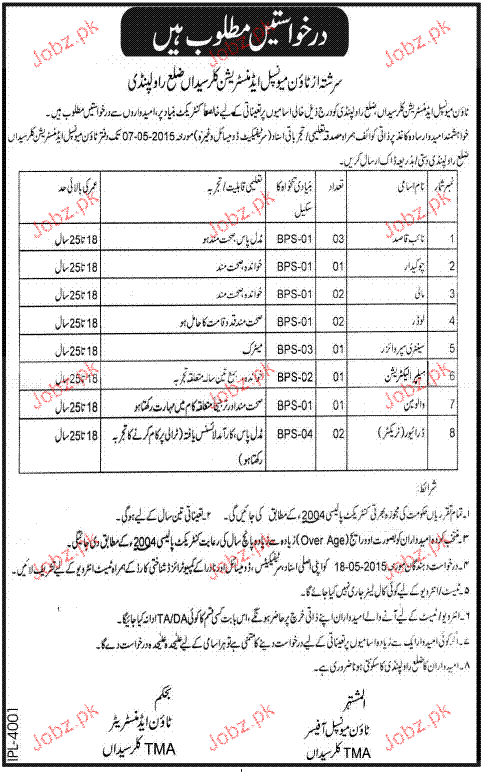 درخواستیں مطلوب ہیں
سرشتہ از ٹاؤن میونسپل ایڈمنسٹریشن کلرسیداں ضلع راولپنڈی
ٹاؤن میونسپل ایڈمنسٹریشن کلرسیداں، ضلع راولپنڈی کو درج ذیل خالی اسامیوں پر تعیناتی کے لیے خالصتاً کنٹریکٹ بنیاد پر، امیدواروں سے درخواستیں مطلوب ہیں۔
خواہشمند امیدوار سادہ کاغذ پر ذاتی کوائف ہمراہ مصدقہ تعلیمی/تجرباتی اسناد (سرٹیفکیٹ ڈومیسائل وغیرہ) مورخہ 07-05-2015 تک دفتر ٹاؤن میونسپل ایڈمنسٹریشن کلرسیداں
ضلع راولپنڈی دستی/بذریعہ ڈاک ارسال کریں۔
نمبر شمار نام اسامی تعداد بنیادی تنخواہ کا سکیل تعلیمی قابلیت/تجربہ عمر کی بالائی حد
1 نائب قاصد 03 BPS-01 مڈل پاس، صحت مند ہو 18 تا 25 سال
2 چوکیدار 01 BPS-01 خواندہ، صحت مند 18 تا 25 سال
3 مالی 02 BPS-01 خواندہ، صحت مند 18 تا 25 سال
4 لوڈر 02 BPS-01 صحت مند قد و قامت کا حامل ہو 18 تا 25 سال
5 سینٹری سپروائزر 01 BPS-03 میٹرک 18 تا 25 سال
6 ہیلپر الیکٹریشن 01 BPS-02 تین سالہ متعلقہ تجربہ 18 تا 25 سال
7 والومین 01 BPS-01 صحت مند اور متعلقہ کام میں مہارت رکھتا ہو 18 تا 25 سال
8 ڈرائیور (ٹریکٹر) 02 BPS-04 مڈل پاس، کارآمد لائسنس یافتہ (ٹرالی پر کام کرنے کا تجربہ 18 تا 25 سال
رکھتا ہو)
شرائط:
۱۔ تمام تقرریاں حکومت کی مجوزہ بھرتی کنٹریکٹ پالیسی 2004ء کے مطابق کی جائیں گی۔ ۲۔ تعیناتی تین سال کے لیے ہوگی۔
۳۔ منتخب کردہ امیدواران کو بصورت اوور ایج (Over Age) زیادہ سے زیادہ پانچ سال کی رعایت کنٹریکٹ پالیسی 2004ء کے مطابق دی جائیگی۔
۴۔ درخواست دہندگان مورخہ 18-05-2015 کو اپنی اصلی اسناد، سرٹیفکیٹس، ڈومیسائل اور نادرا کے کمپیوٹرائزڈ شناختی کارڈ کے ہمراہ ٹیسٹ انٹرویو کے لیے تشریف لائیں۔
۵۔ ٹیسٹ/انٹرویو کے لیے کوئی کال لیٹر جاری نہیں کیا جائے گا۔
۶۔ انٹرویو/ٹیسٹ کے لیے آنے والے امیدواران اپنے ذاتی خرچ پر حاضر ہونگے، اس بابت کسی قسم کا کوئی TA/DA ادا نہ کیا جائیگا۔
۷۔ اگر کوئی امیدوار ایک سے زیادہ اسامیوں پر تعیناتی کے لیے درخواست دینے کا متمنی ہے تو ہر اسامی کے لیے علیحدہ علیحدہ درخواست دے گا۔
۸۔ امیدواران کا ضلع راولپنڈی کا سکونتی ہونا ضروری ہے۔
المشتہر
ٹاؤن میونسپل آفیسر
TMA کلرسیداں
بحکم
ٹاؤن ایڈمنسٹریٹر
TMA کلرسیداں
IPL-4001
Jobz.pk